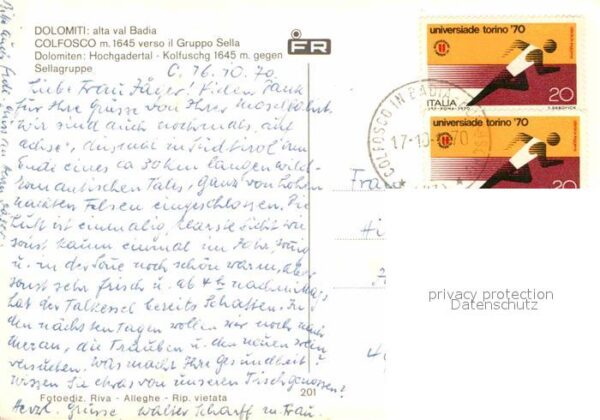 DOLOMITI: alta val Badia
COLFOSCO m. 1645 verso il Gruppo Sella
Dolomiten: Hochgadertal - Kolfuschg 1645 m. gegen
Sellagruppe
FR
C. 16. 10. 70
Liebe Frau Jäger! Vielen Dank
für Ihre Grüsse von Ihrer Moselfahrt.
Wir sind auch nochmals "auf
Achse", diesmal in Südtirol am
Ende eines ca 30 km langen wild-
romantischen Tales, ganz von hohen
nackten Felsen eingeschlossen. Die
Luft ist einmalig, klarste Sicht wie
sonst kaum einmal im Jahr, sonnig
u. in der Sonne noch schön warm, aber
sonst sehr frisch u. ab 4 h nachmittags
hat der Talkessel bereits Schatten. In
den nächsten Tagen wollen wir noch nach
Meran, die Trauben u. den neuen Wein
versuchen. Was macht Ihre Gesundheit u.
wissen Sie etwas von unseren Tischgenossen?
Herzl. Grüsse, Walter Scharff u. Frau.
Fotoediz. Riva - Alleghe - Rip. vietata
201
universiade torino '70
ITALIA
20
universiade torino '70
20
COLFOSCO IN BADIA
17-10-1970
Frau
privacy protection
Datenschutz